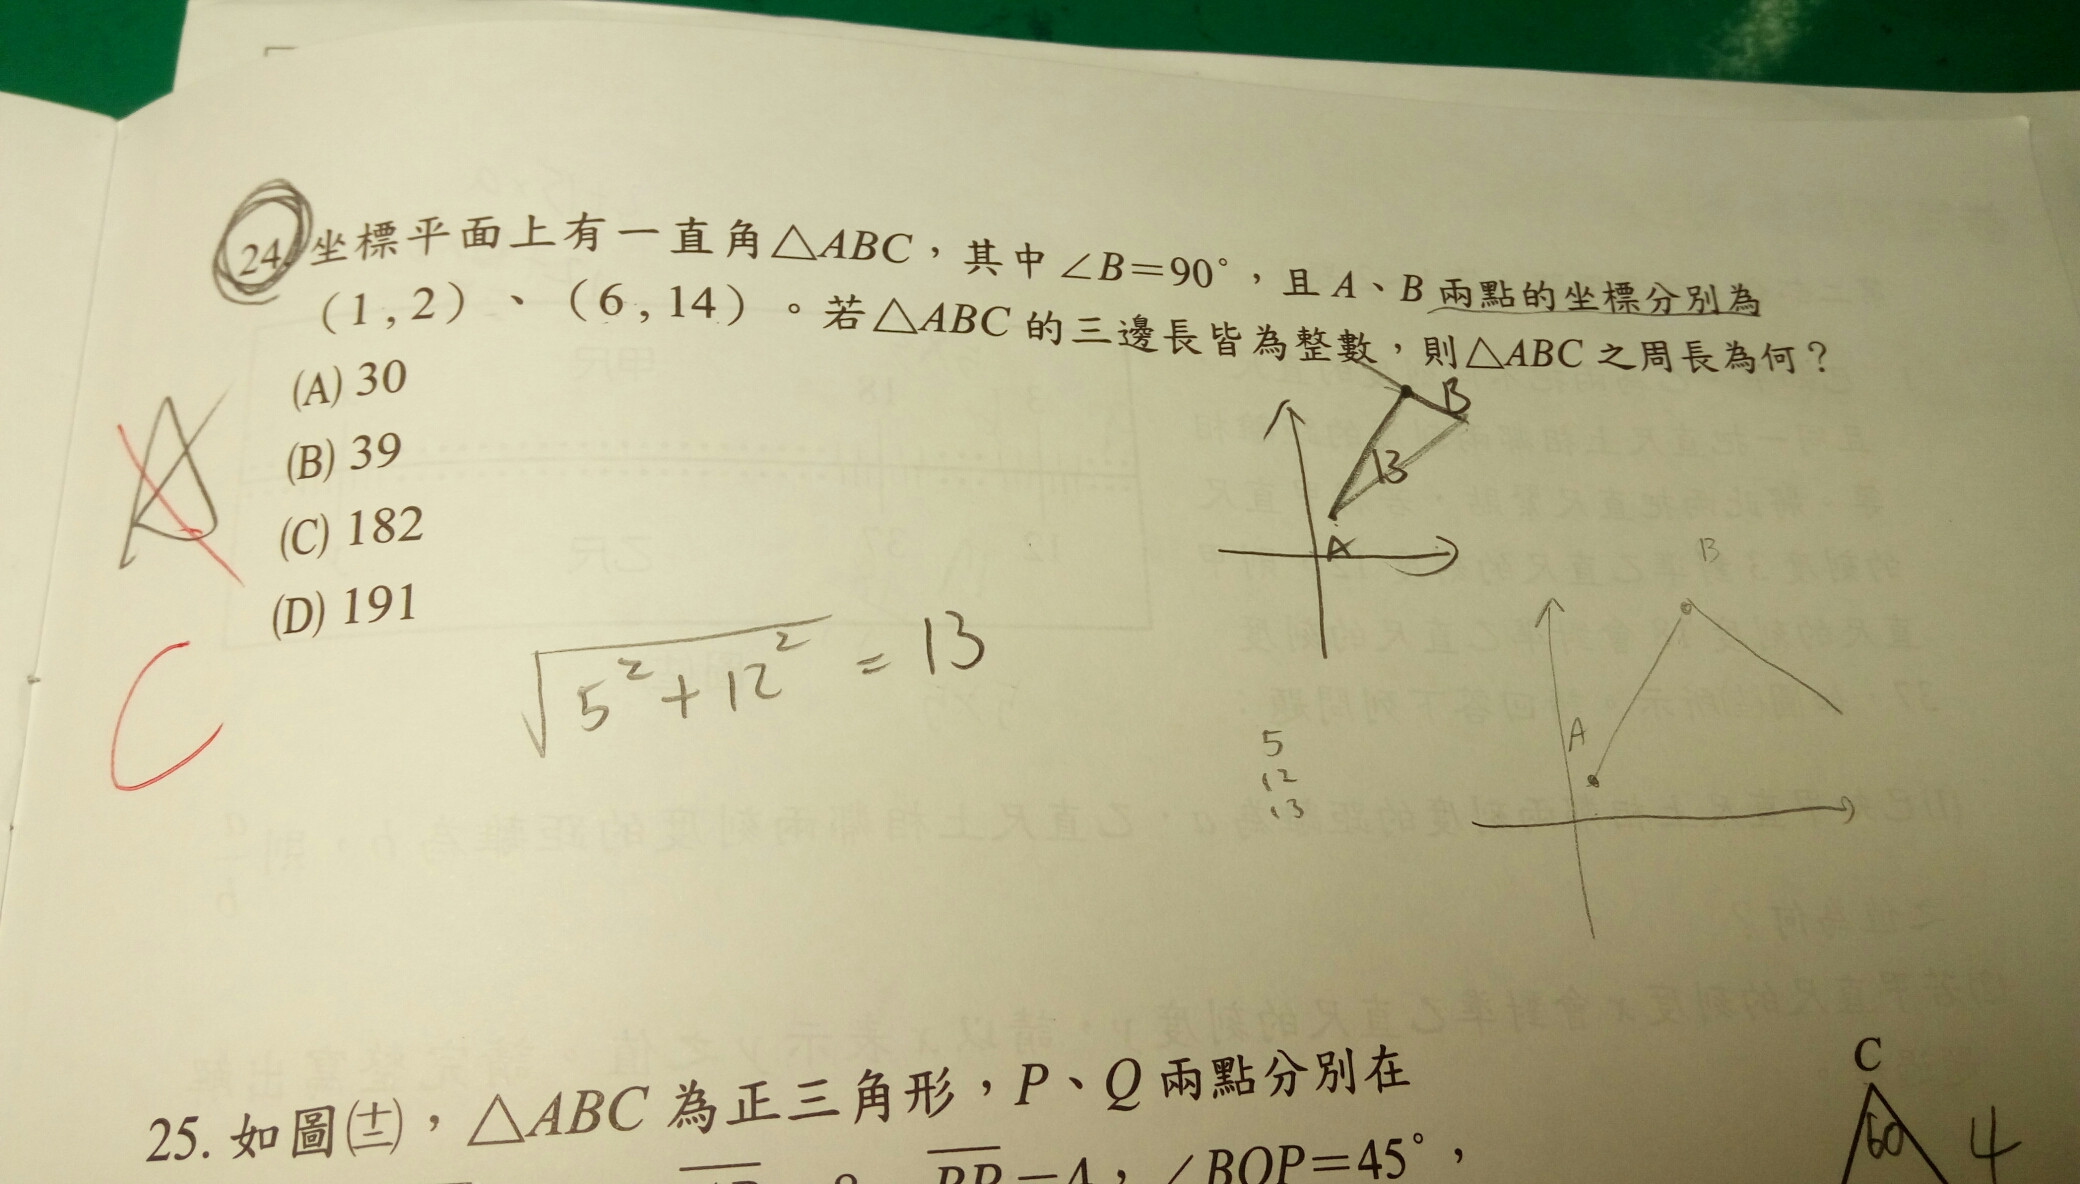 24. 坐標平面上有一直角△ABC,其中∠B=90°,且A、B兩點的坐標分別為
(1,2)、(6,14)。若△ABC的三邊長皆為整數,則△ABC之周長為何?
(A) 30
(B) 39
(C) 182
(D) 191
A
C
√(5²+12²) = 13
B
13
A
B
A
5
12
13
25. 如圖(十二),△ABC為正三角形,P、Q兩點分別在
∠BQP=45°,
C
60
4